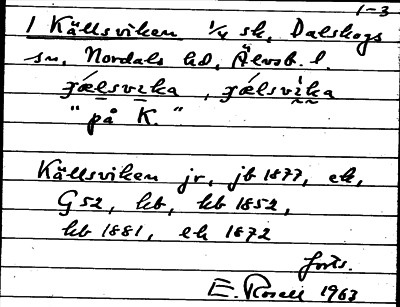 1-3
1 Källsviken 1/4 sk, Dalskogs
sn, Nordals hd, Älvsb. l.
jǽlsvika, jǽlsvika
"på K."
Källsviken jr, jb 1877, ek,
G 52, kb, hb 1852,
hb 1881, ek 1872
forts.
E. Rosell 1963